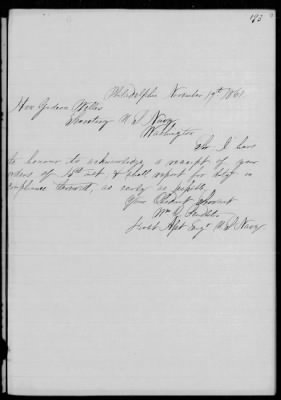 193
Philadelphia November 19th 1861
Hon Gideon Welles
Secretary U. S. Navy
Washington
Sir I have
the honour to acknowledge a receipt of your
orders of 15th inst. & shall report for duty in
compliance therewith, as early as possible
Your Obedient Servant
Wm
First Asst Engr U. S. Navy